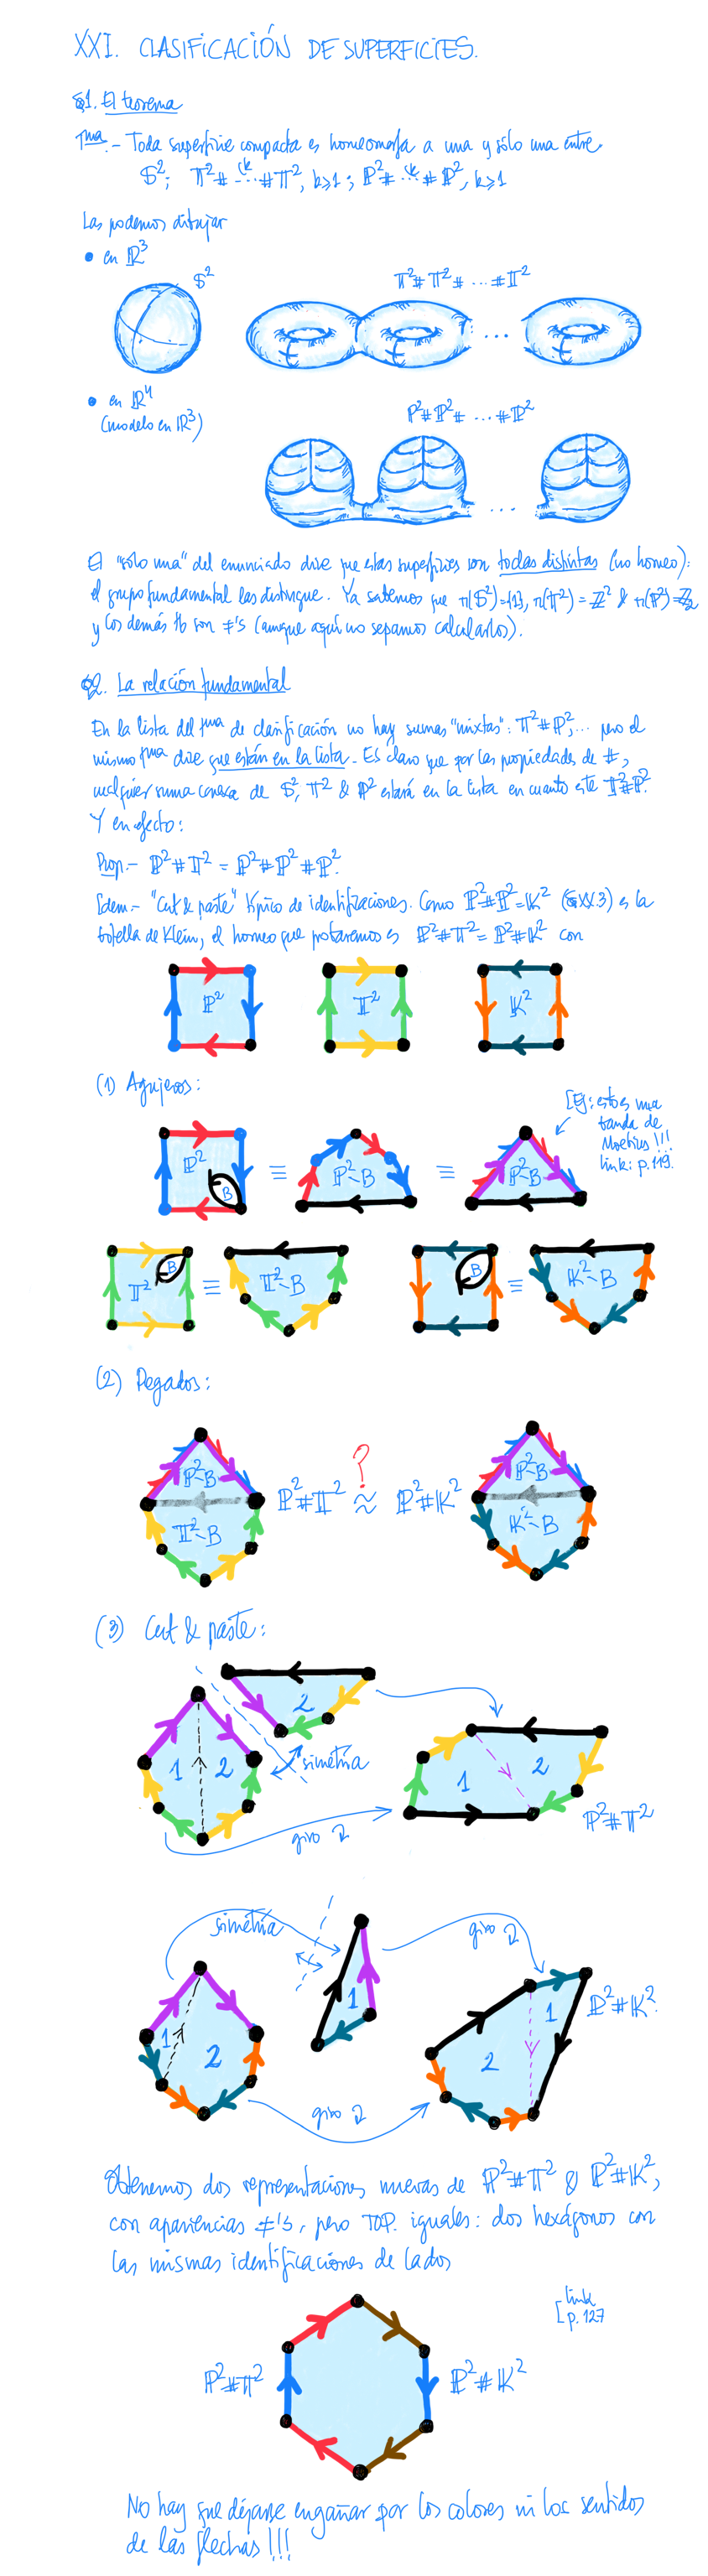 XXI. CLASIFICACIÓN DE SUPERFICIES.
§1. El teorema
Tma.- Toda superficie compacta es homeomorfa a una y sólo una entre
𝕊²; 𝕋²# (k... #𝕋², k≥1; ℙ²# (k... #ℙ², k≥1
Las podemos dibujar
• en ℝ³
𝕊²
𝕋²#𝕋²# ... #𝕋²
• en ℝ⁴
(modelo en ℝ³)
ℙ²#ℙ²# ... #ℙ²
El "sólo una" del enunciado dice que estas superficies son todas distintas (no homeo):
el grupo fundamental las distingue. Ya sabemos que π(𝕊²)={1}, π(𝕋²)=ℤ² & π(ℙ²)=ℤ₂
y los demás tb son ≠'s (aunque aquí no sepamos calcularlos).
§2. La relación fundamental
En la lista del tma de clasificación no hay sumas "mixtas": 𝕋²#ℙ²,... pero el
mismo tma dice que están en la lista. Es claro que por las propiedades de #,
cualquier suma conexa de 𝕊², 𝕋² & ℙ² estará en la lista en cuanto esté 𝕋²#ℙ².
Y en efecto:
Prop.- ℙ²#𝕋² = ℙ²#ℙ²#ℙ².
Dem.- "Cut & paste" típico de identificaciones. Como ℙ²#ℙ²=𝕂² (§XX.3) es la
botella de Klein, el homeo que probaremos es ℙ²#𝕋² = ℙ²#𝕂² con
ℙ²
𝕋²
𝕂²
(1) Agujeros:
[Ej: esto es una
banda de
Moebius!!!
link: p.119.
ℙ²
B
≡
ℙ²\B
≡
ℙ²\B
𝕋²
B
≡
𝕋²\B
B
≡
𝕂²\B
(2) Pegados:
ℙ²\B
𝕋²\B
ℙ²#𝕋² ≈ ℙ²#𝕂²
?
ℙ²\B
𝕂²\B
(3) Cut & paste:
2
1
2
simetría
giro
1
2
ℙ²#𝕋²
simetría
giro
1
1
2
1
2
ℙ²#𝕂².
giro
Obtenemos dos representaciones nuevas de ℙ²#𝕋² & ℙ²#𝕂²,
con apariencias ≠'s, pero TOP. iguales: dos hexágonos con
las mismas identificaciones de lados
[link
p.127
ℙ²#𝕋²
ℙ²#𝕂²
No hay que dejarse engañar por los colores ni los sentidos
de las flechas!!!